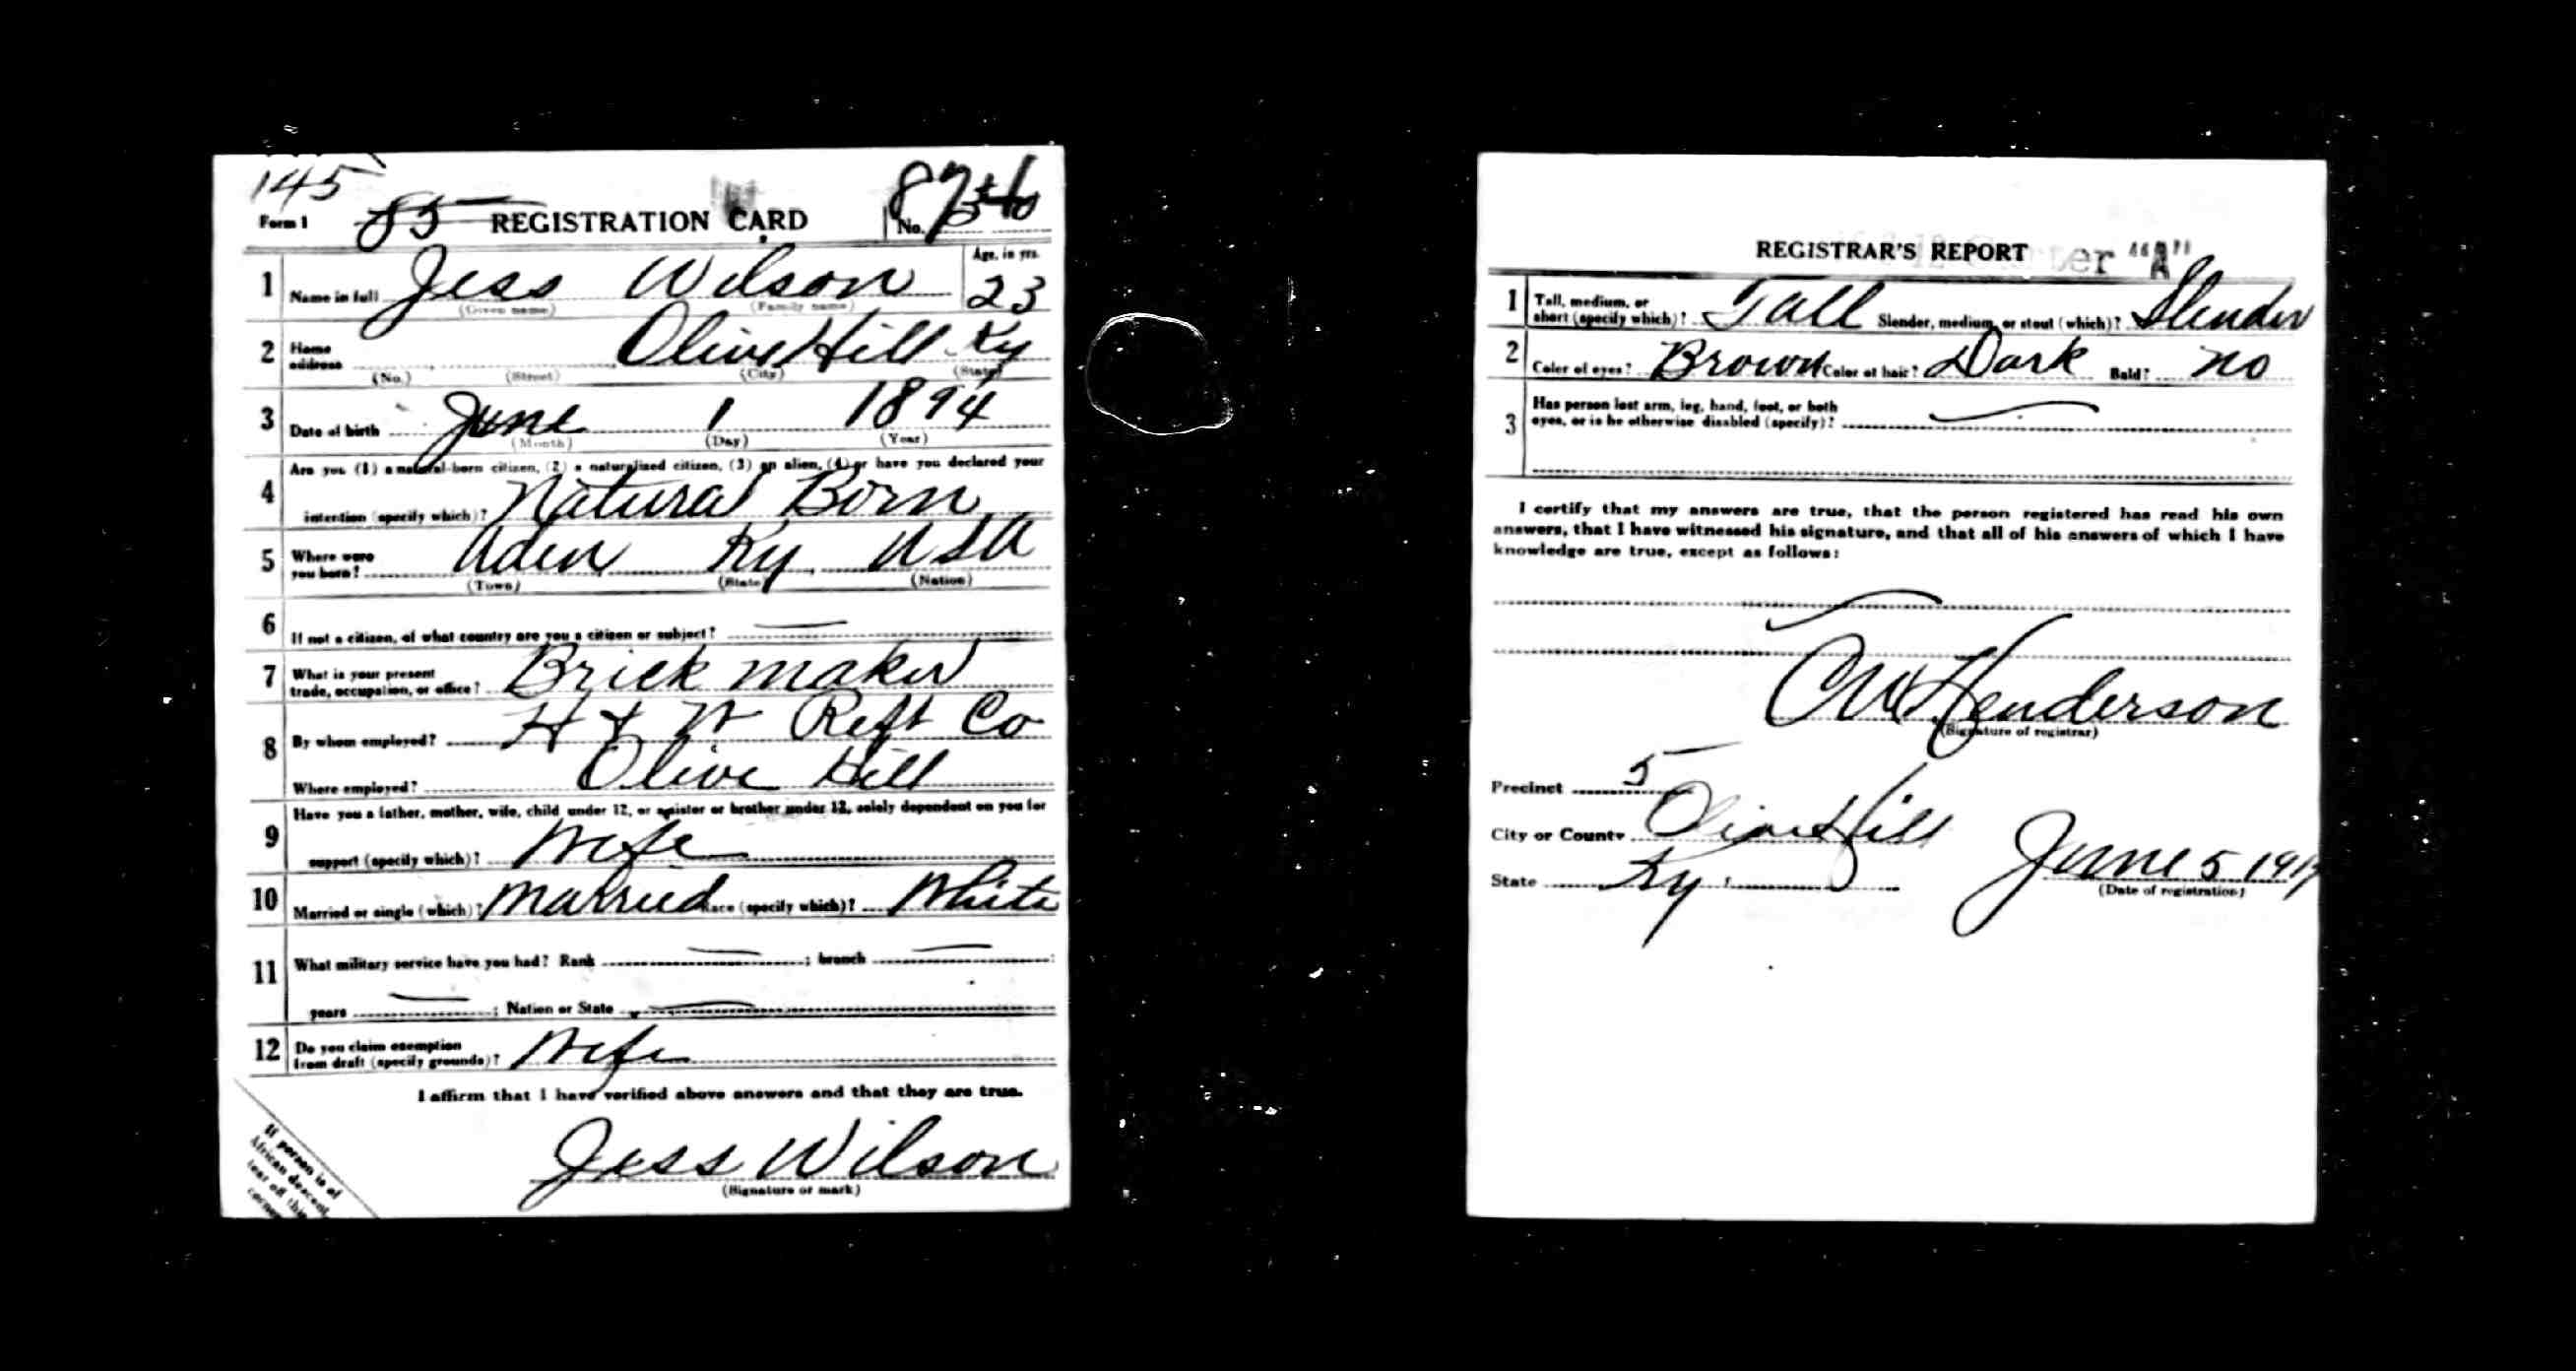 145
Form 1 85 REGISTRATION CARD No.
Age, in yrs.
1 Name in full Jess Wilson 23
(Given name) (Family name)
2 Home address Olive Hill Ky
(No.) (Street) (City) (State)
3 Date of birth June 1 1894
(Month) (Day) (Year)
4 Are you (1) a natural-born citizen, (2) a naturalized citizen, (3) an alien, (4) or have you declared your
intention (specify which)? Natural Born
5 Where were you born? Aden Ky USA
(Town) (State) (Nation)
6 If not a citizen, of what country are you a citizen or subject?
7 What is your present
trade, occupation, or office? Brick maker
8 By whom employed? H & W Reft Co
Where employed? Olive Hill
9 Have you a father, mother, wife, child under 12, or a sister or brother under 12, solely dependent on you for
support (specify which)? Wife
10 Married or single (which)? Married Race (specify which)? White
11 What military service have you had? Rank ; branch ;
years ; Nation or State
12 Do you claim exemption
from draft (specify grounds)? Wife
I affirm that I have verified above answers and that they are true.
Jess Wilson
(Signature or mark)
If person is of
African descent,
tear off this
corner
REGISTRAR'S REPORT "A"
1 Tall, medium, or
short (specify which)? Tall Slender, medium, or stout (which)? Slender
2 Color of eyes? Brown Color of hair? Dark Bald? no
3 Has person lost arm, leg, hand, foot, or both
eyes, or is he otherwise disabled (specify)?
I certify that my answers are true, that the person registered has read his own
answers, that I have witnessed his signature, and that all of his answers of which I have
knowledge are true, except as follows:
CW Henderson
(Signature of registrar)
Precinct 5
City or County Olive Hill
State Ky. June 5 1917
(Date of registration)